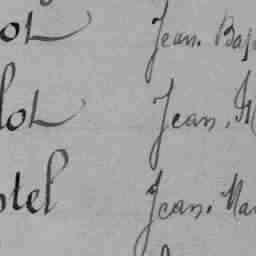 ot Jean. Bap
lot Jean.
stel Jean. Mar